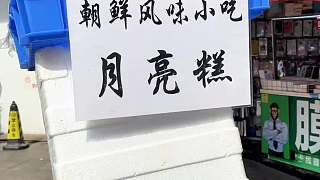 朝鲜风味小吃
月亮糕
膜